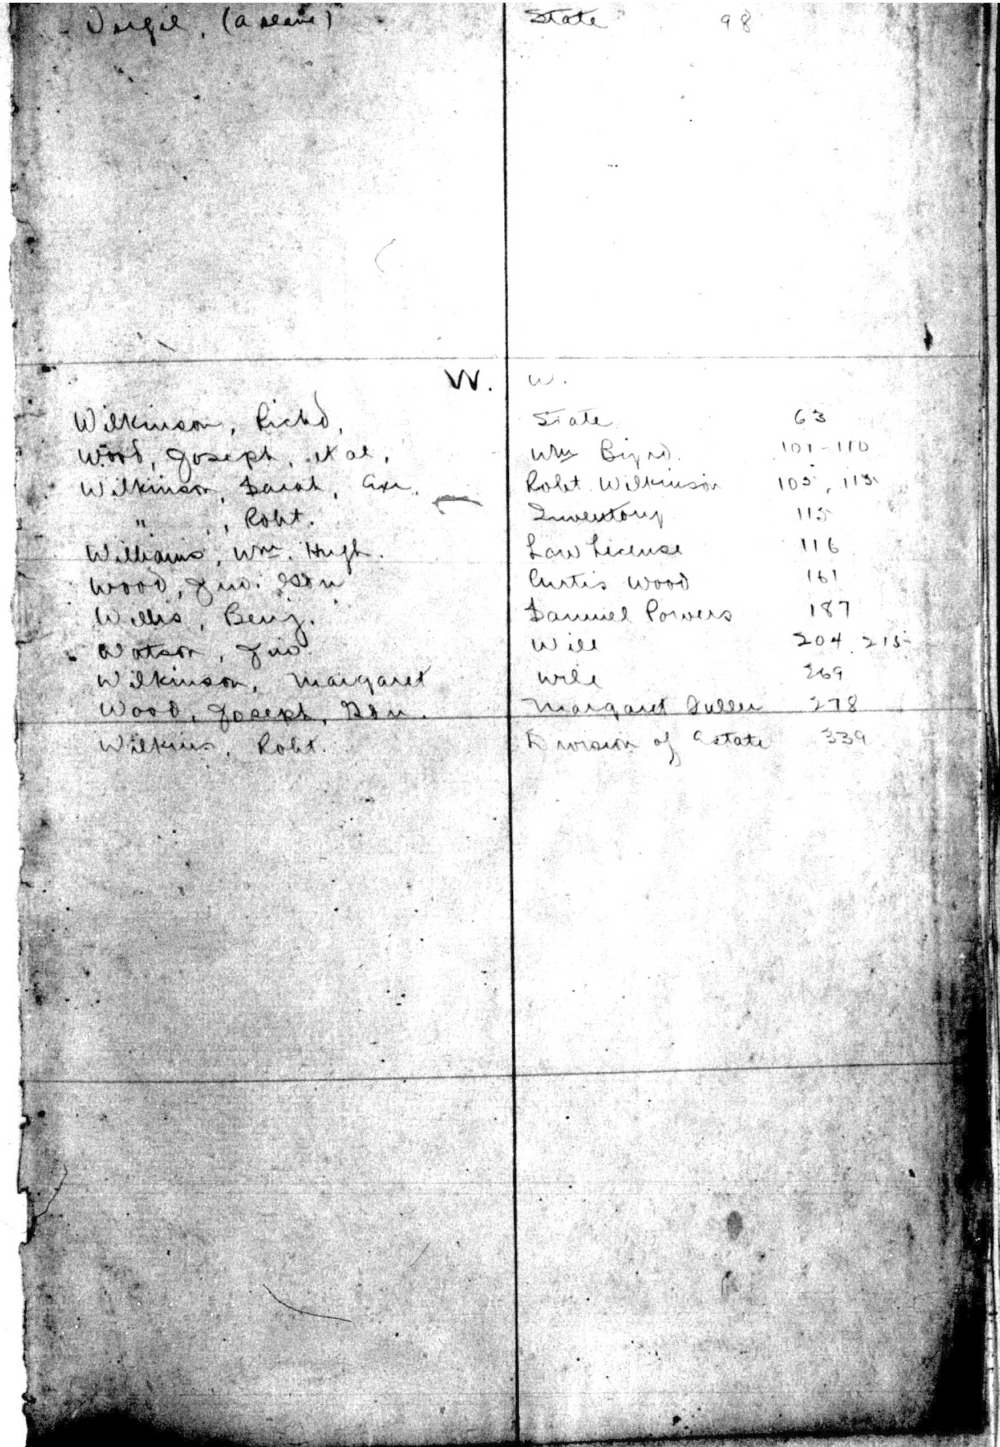 Virgil, (a slave) State 98
W. W.
Wilkinson, Richd, State 63
Wood, Joseph, et al, Wm Byrd. 101-110
Wilkinson, Sarah, Exr. Robt. Wilkinson 105, 115
" , Robt. Inventory 115
Williams, Wm. Hugh. Law License 116
Wood, Jno. Gdn Curtis Wood 161
Willis, Benj. Samuel Powers 187
Watson, Jno. Will 204, 215
Wilkinson, Margaret Will 269
Wood, Joseph, Gdn. Margaret Fuller 278
Wilkins, Robt. Division of Estate 339